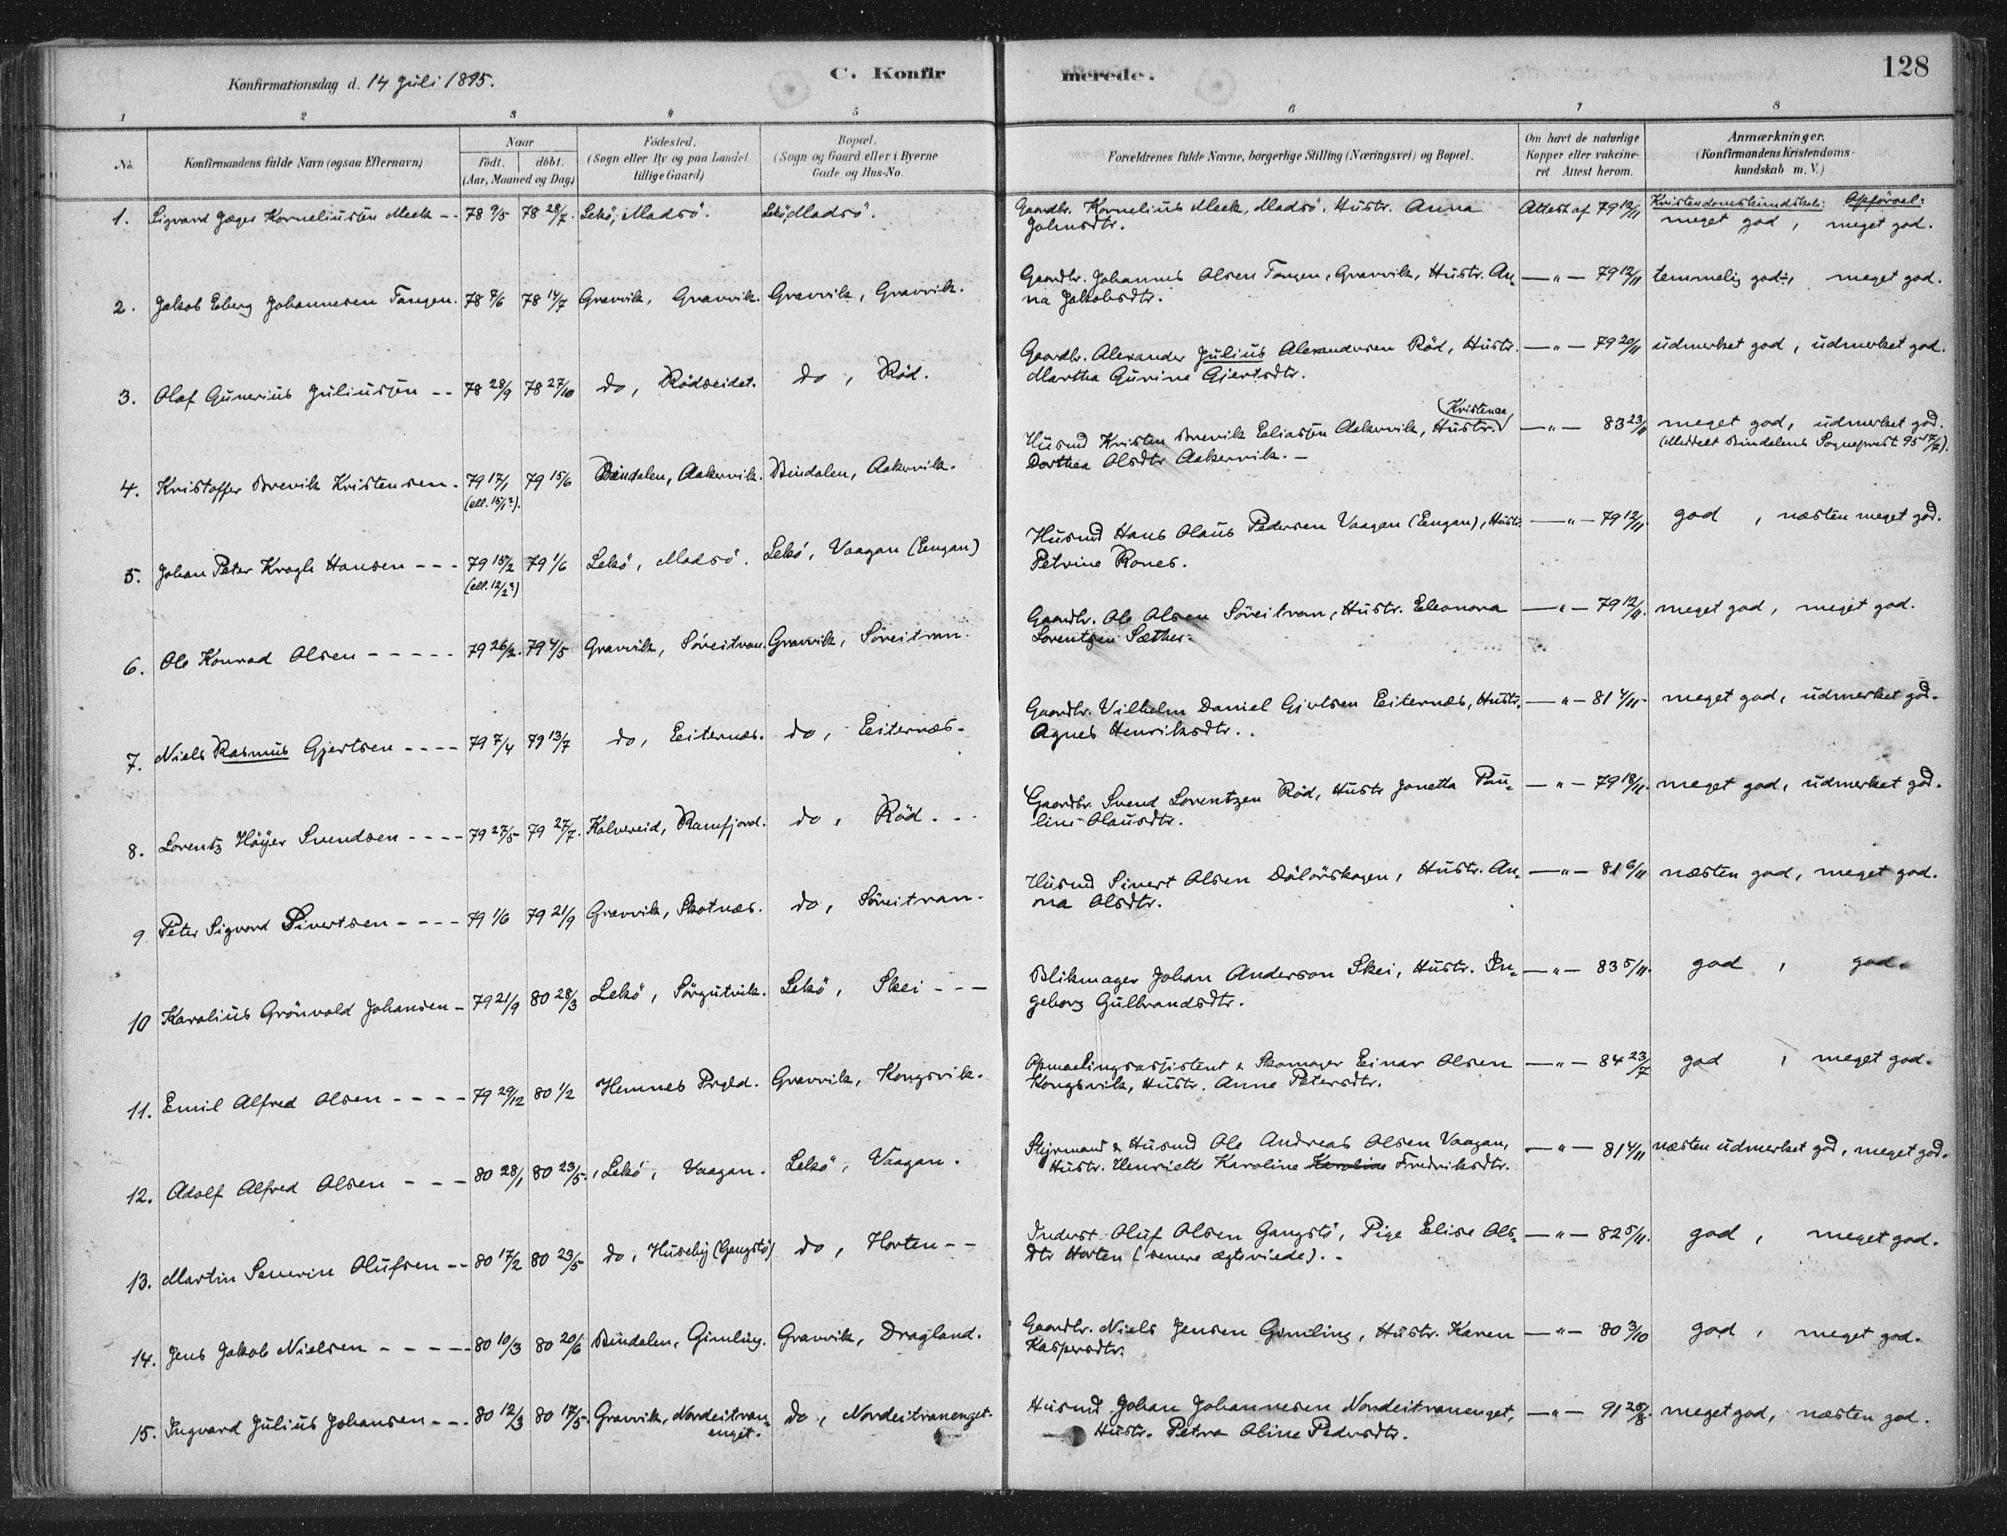 Konfirmationsdag d. 14 Juli 1895.
C. Konfirmerede.
128
1 2 3 4 5 6 7 8
No.
Konfirmandens fulde Navn (ogsaa Efternavn)
Naar
født. døbt.
(Aar, Maaned og Dag)
Fødested.
(Sogn eller By og paa Landet
tillige Gaard)
Bopæl.
(Sogn og Gaard eller i Byerne
Gade og Hus-No.
Forældrenes fulde Navne, borgerlige Stilling (Næringsvei) og Bopæl.
Om havt de naturlige
Kopper eller vakcine-
ret. Attest herom.
Anmærkninger.
(Konfirmandens Kristendoms-
kundskab m. V.)
Kristendomskundskab: Opførsel:
1. Sigvard Jæger Korneliusen Meek -- 78 9/5 78 28/7. Lekø, Madsø. Lekø Madsø. Gaardbr. Kornelius Meek, Madsø, Hustr. Anna
Johnsdtr. Attest af 79 12/11 meget god, meget god.
2. Jakob Eberg Johannesen Tangen. 78 9/6 78 14/7 Gravvik, Gravvik. Gravvik, Gravvik. Gaardbr. Johannes Olsen Tangen, Gravvik, Hustr. An-
na Jakobsdtr. —"— 79 12/11 temmelig god, meget god.
3. Olaf Gunerius Juliussen -- 78 28/9 78 27/10 do, Rødseidet. do, Rød. Gaardbr. Alexander Julius Alexandersen Rød, Hustr.
Martha Gurine Gjertsdtr. —"— 79 20/11 udmerket god, udmerket god.
4. Kristoffer Brevik Kristensen. 79 17/1 79 15/6 Bindalen, Aakervik. Bindalen, Aakervik.
(ell. 15/1?).
Husmd Kristen Brevik Eliassen Aakervik, Hustr. (Kristense)
Dorthea Olsdtr Aakervik. — —"— 83 23/11 meget god, udmerket god.
(Meddelt Bindalens Sogneprest 95 17/7).
5. Johan Peter Krogh Hansen --- 79 15/2 79 1/6 Lekø, Madsø. Lekø, Vaagan (Engan)
(ell. 12/2?)
Husmd Hans Olaus Pedersen Vaagan (Engan), Hustr.
Petrine Rones. —"— 79 12/11. god, næsten meget god.
6. Ole Konrad Olsen ----- 79 26/2. 79 4/5 Gravvik, Søreitran. Gravvik, Søreitran. Gaardbr. Ole Olsen Søreitran, Hustr. Eleonora
Lorentzen Sæther. —"— 79 12/11. meget god, meget god.
7. Niels Rasmus Gjertsen ---- 79 7/4 79 13/7 do, Eiternæs. do, Eiternæs. Gaardbr. Vilhelm Daniel Gjertsen Eiternæs, Hustr.
Agnes Henriksdtr. . —"— 81 4/11. meget god, udmerket god.
8. Lorentz Höyer Svendsen ---- 79 27/5 79 27/7. Kolvereid, Ramfjord. do, Rød. -- Gaardbr. Svend Lorentzen Rød, Hustr Jonetta Pau-
line Olausdtr. —"— 79 18/11. meget god, udmerket god.
9. Peter Sigvard Sivertsen ---- 79 1/6 79 21/9 Gravvik, Skotnæs. do, Søreitran. Husmd Sivert Olsen Dølørskogen, Hustr. An-
na Olsdtr. —"— 81 6/11 næsten god, meget god.
10 Karolius Grönvold Johansen - 79 21/9 80 28/3 Lekø, Sørgutvik. Lekø, Skei --- Blikmager Johan Anderson Skei, Hustr. In-
geborg Gulbrandsdtr. —"— 83 5/11. god, god.
11. Emil Alfred Olsen ---- 79 29/12 80 1/2 Hemnes Prgld. Gravvik, Kongsvik. Opmaalingsassistent & Skomager Einar Olsen
Kongsvik, Hustr. Anne Petersdtr. —"— 84 23/7 god, meget god.
12. Adolf Alfred Olsen --- 80 28/1 80 23/5. Lekø, Vaagan. Lekø, Vaagan. Styrmand & Husmd Ole Andreas Olsen Vaagan,
Hustr. Henriette Karoline Karoline Fredriksdtr. —"— 81 4/11 næsten udmerket god, meget god.
13. Martin Severin Olufsen -- 80 17/2 80 23/5 do, Huseby (Gangstø) do, Horten -- Inderst Oluf Olsen Gangstö, Pige Elise Ols-
dtr Horten (senere ægteviede). - —"— 82 5/11. god, meget god.
14. Jens Jakob Nielsen ----- 80 10/3 80 20/6 Bindalen, Gimling. Gravvik, Dragland. Gaardbr. Niels Jensen Gimling, Hustr. Karen
Kaspersdtr. —"— 80 3/10 god, meget god.
15. Ingvard Julius Johansen --- 80 12/3 80 17/5. Gravvik, Nordeitran-
enget. do, Nordeitranenget. Husmd Johan Johannesen Nordeitranenget,
Hustr. Petra Oline Pedersdtr. —"— 91 28/8. meget god, næsten god.